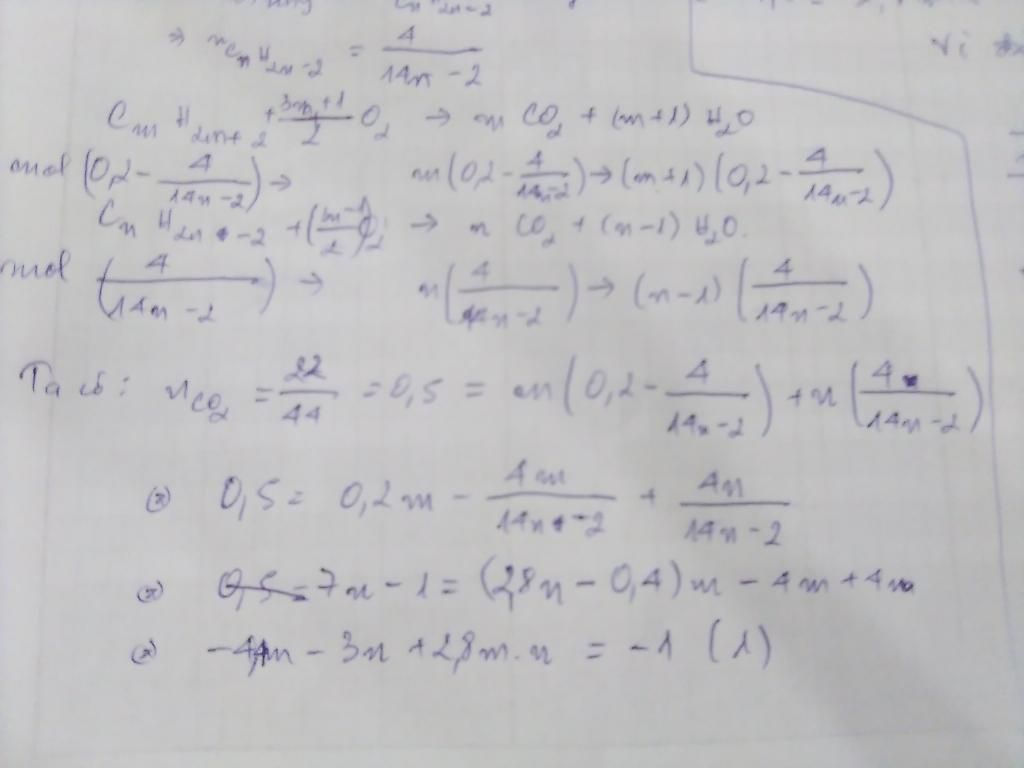 ⇒ n CₙH₂ₙ₋₂ = 4/(14n - 2)
CₘH₂ₘ₊₂ + (3m+1)/2 O₂ → m CO₂ + (m+1) H₂O
mol (0,2 - 4/(14n-2)) → m(0,2 - 4/(14n-2)) → (m+1)(0,2 - 4/(14n-2))
CₙH₂ₙ₋₂ + O₂ → n CO₂ + (n-1) H₂O.
mol (4/(14n-2)) → n(4/(14n-2)) → (n-1)(4/(14n-2))
Ta có: n CO₂ = 22/44 = 0,5 = m(0,2 - 4/(14n-2)) + n(4/(14n-2))
0,5 = 0,2m - 4m/(14n-2) + 4n/(14n-2)
7n - 1 = (2,8n - 0,4)m - 4m + 4n
-4,4m - 3n + 2,8m.n = -1 (1)